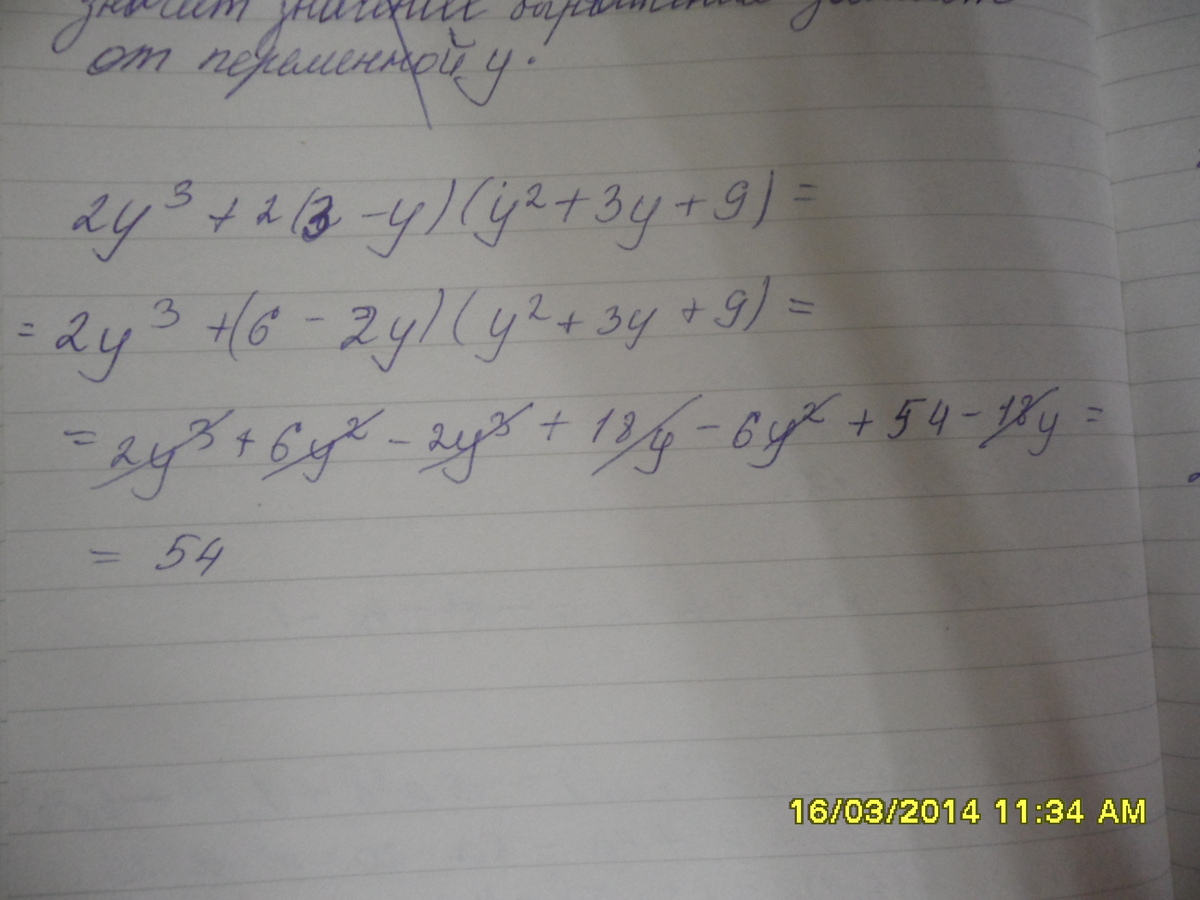 значит значение выражения зависит
от переменной y.
2y³ + 2(3 - y)(y² + 3y + 9) =
= 2y³ + (6 - 2y)(y² + 3y + 9) =
= 2y³ + 6y² - 2y³ + 18y - 6y² + 54 - 18y =
= 54
16/03/2014 11:34 AM